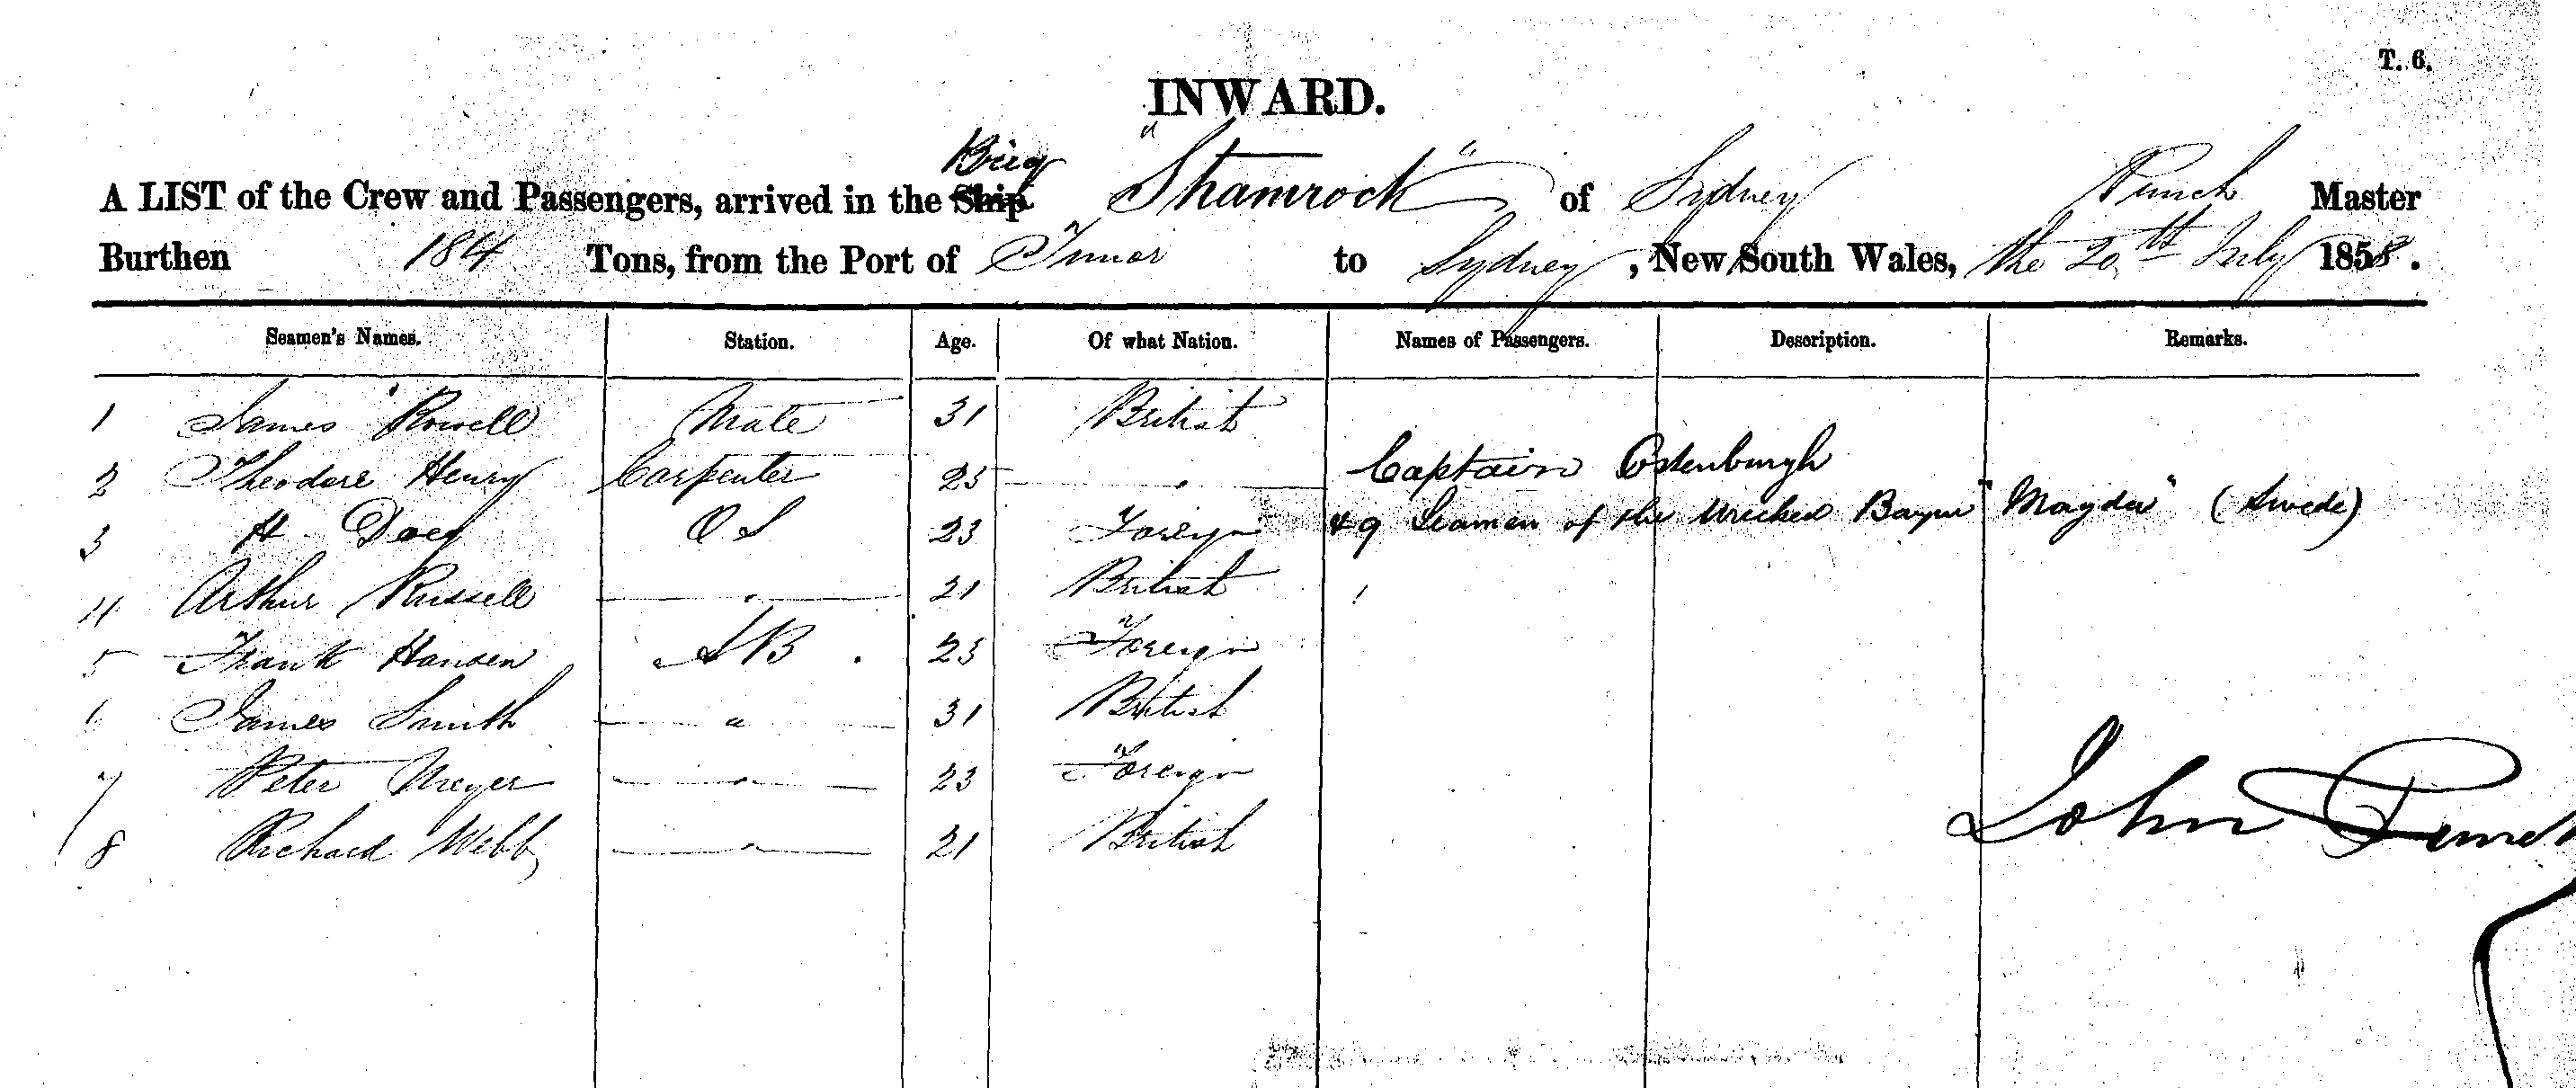 T. 6.
INWARD.
A LIST of the Crew and Passengers, arrived in the Ship Brig "Shamrock" of Sydney Punch Master
Burthen 184 Tons, from the Port of Timor to Sydney, New South Wales, the 20th July 1858.
Seamen's Names. Station. Age. Of what Nation. Names of Passengers. Description. Remarks.
1 James Rowell Mate 31 British
2 Theodore Henry Carpenter 25 " Captain Ostenburgh
3 H. O S 23 Foreign & 9 Seamen of the Wrecked Barque "Magda" (Swede)
4 Arthur Russell " 21 British
5 Frank Hansen AB. 23 Foreign
6 James Smith " 31 British
7 Peter Meyer " 23 Foreign
8 Richard Webb " 21 British
John Punch